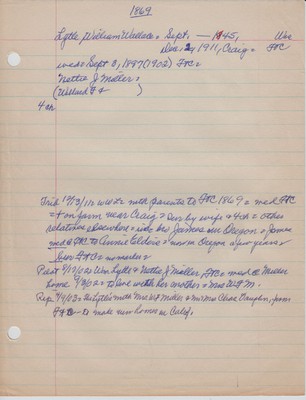 1869
Lytle William Wallace = Sept. — 1845, Wis
Dec 2, 1911, Craig = FtC
wed = Sept 3, 1887 (1902) FtC =
Nettie J Miller =
(Willard F &
4 ch
Trib 12/13/11: WWL = with parents to FtC 1869 = wed FtC
= on farm near Craig = Surv by wife & 4 ch = other
relatives elsewhere = inc bro James in Oregon = James
wed @ FtC to Annie = now in Oregon a few years =
bur FtC = no marker =
Post Wm Lytle & Nettie J Miller, FtC = wed @ Miller
home = to live with her mother = Mrs WFM.
Rep = the Lytles with Mrs WF Miller & Mr Mrs Chas Vaughn, from
FtC to make new homes in Calif.